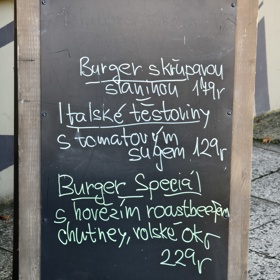 Burger skřupavou
slaninou 149,-
Italské těstoviny
s tomatovým
sugem 129,-
Burger Speciál
s hovězím roastbeefem
chutney, volské oko
229,-